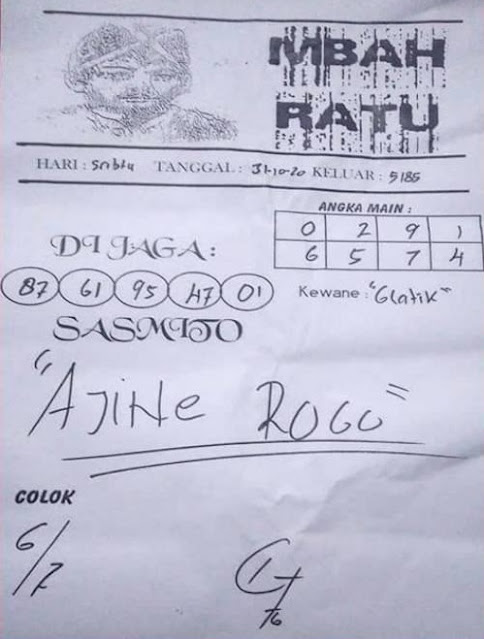 MBAH
RATU
HARI : Sabtu TANGGAL : 31-10-20 KELUAR : 5185
ANGKA MAIN :
0 2 9 1
6 5 7 4
DI JAGA :
87 61 95 47 01
Kewane : "Glatik"
SASMITO
"AJINE ROGO"
COLOK
6/7